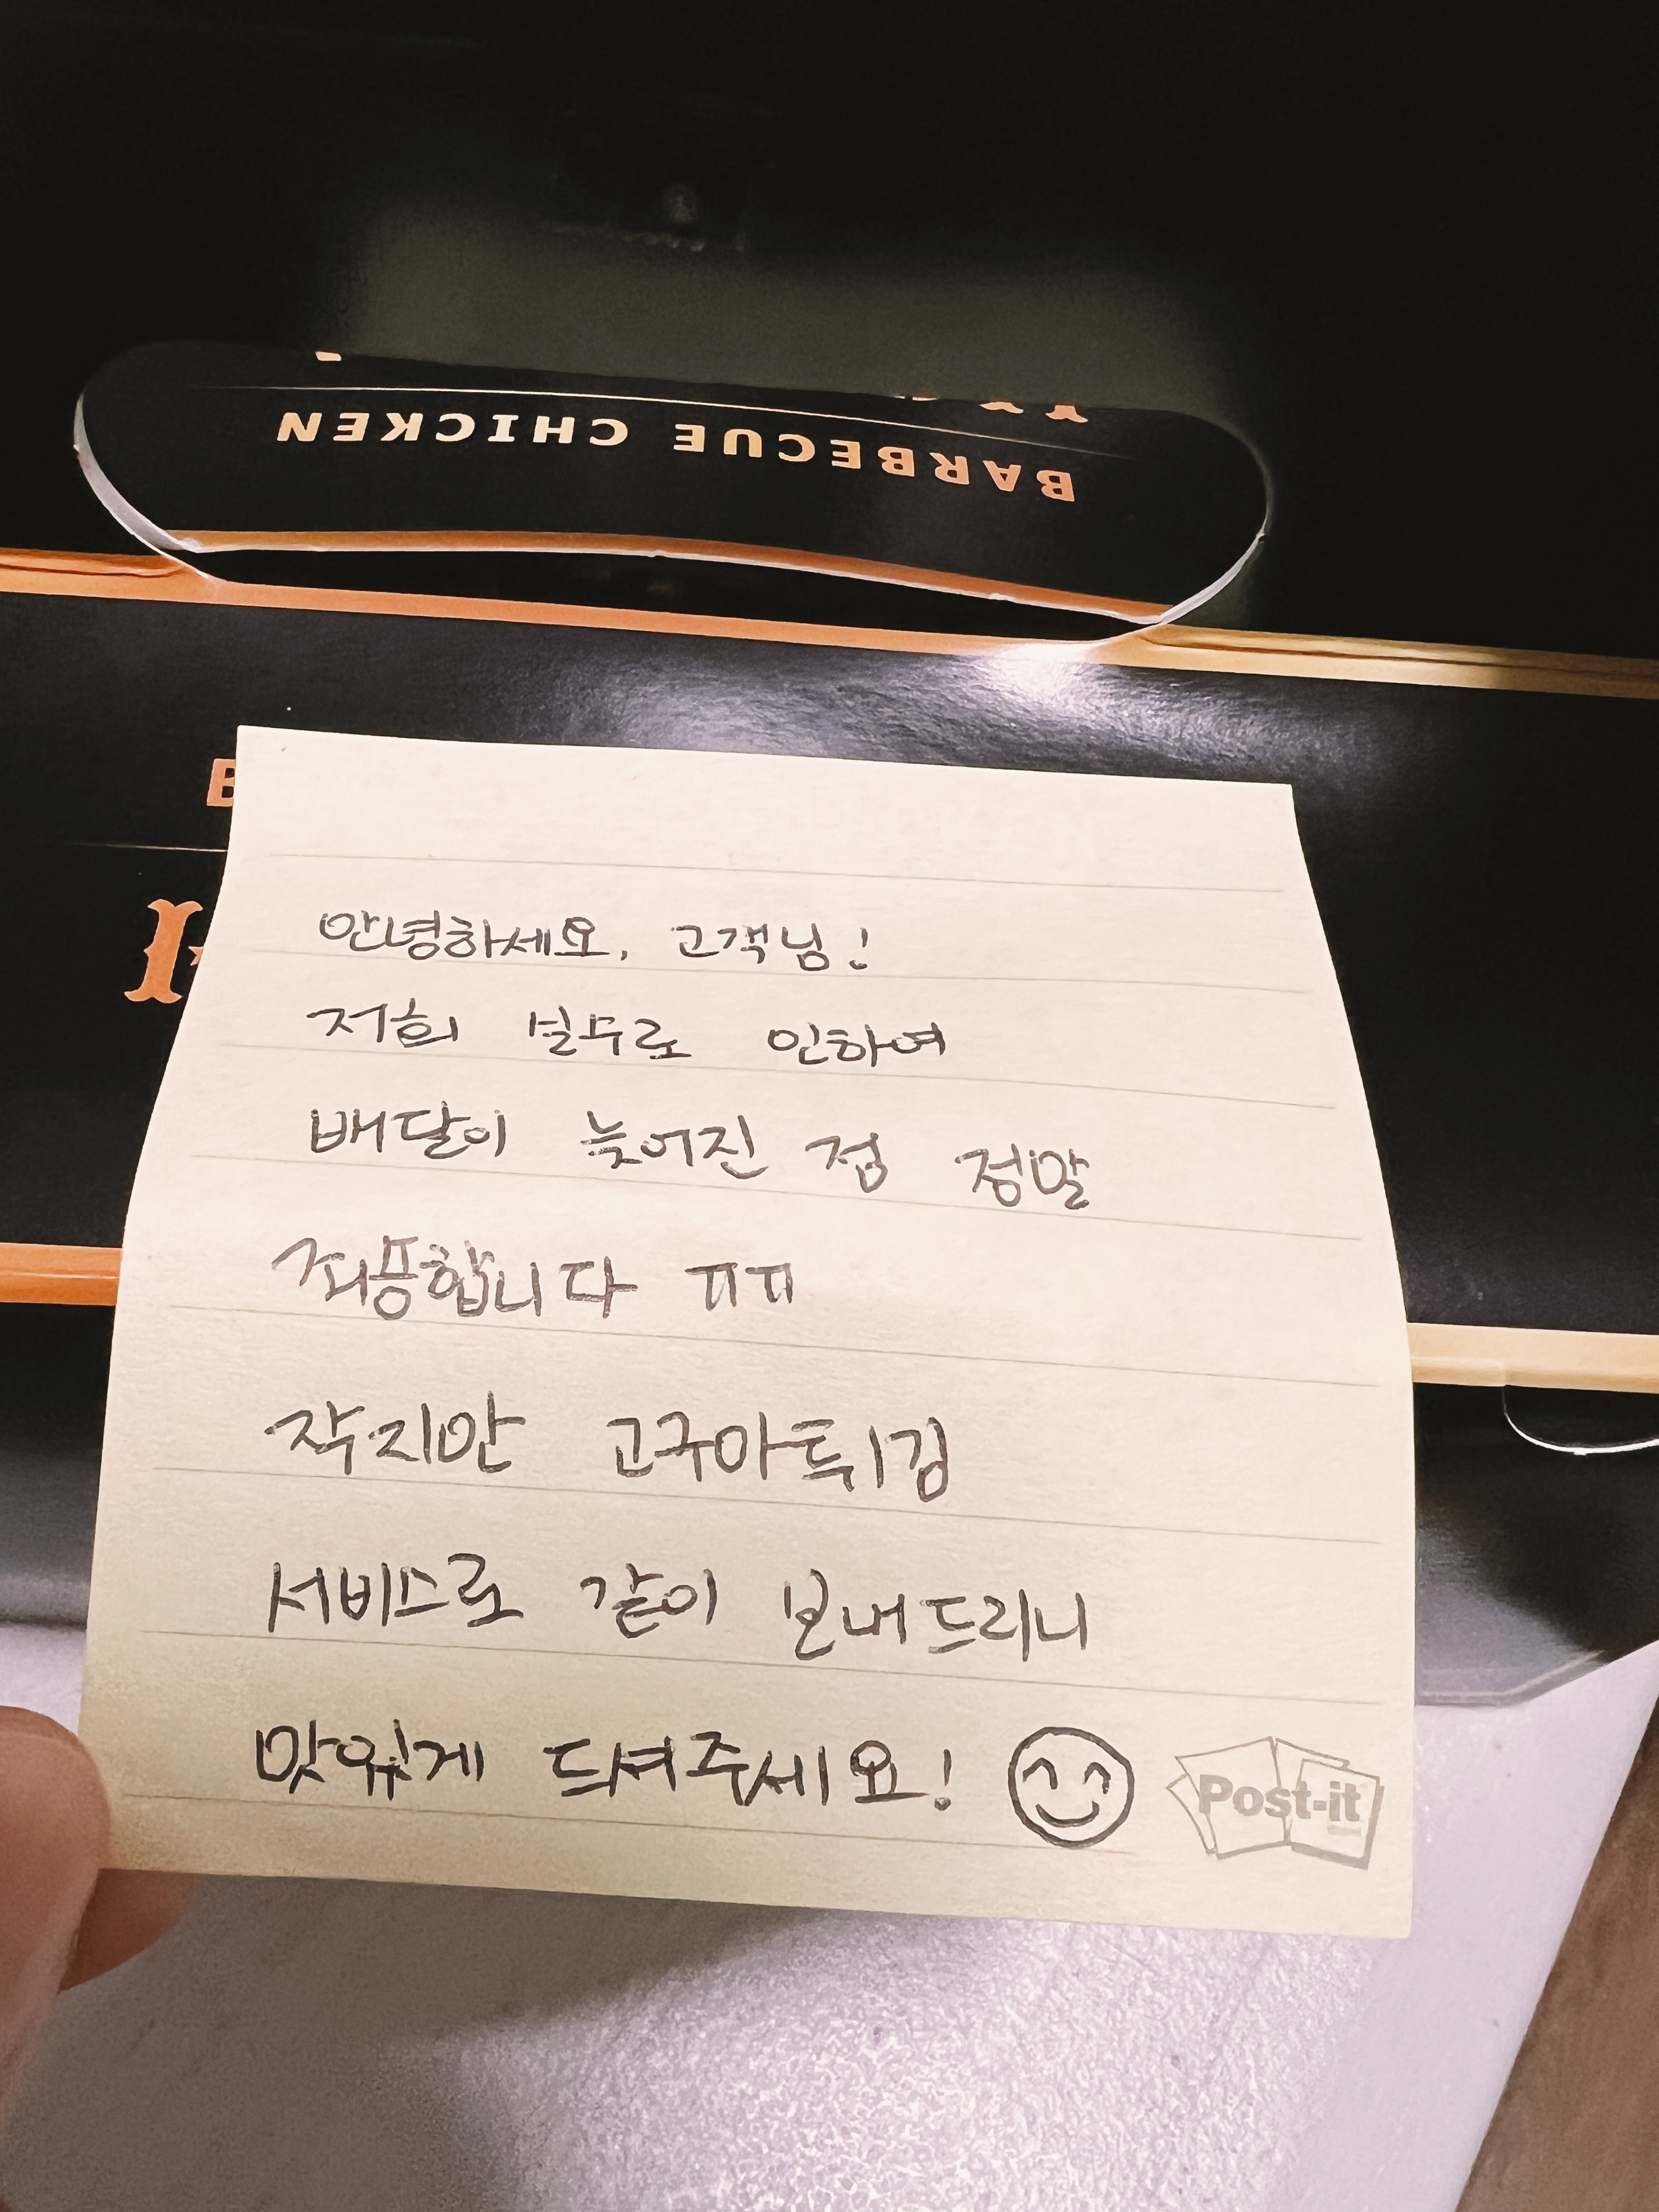 BARBECUE CHICKEN
안녕하세요, 고객님!
저희 불무로 인하여
배달이 늦어진 점 정말
죄풍합니다 ㅠㅠ
작지만 고구마튀김
서비스로 같이 보내드리니
맛있게 드셔주세요!
Post-it